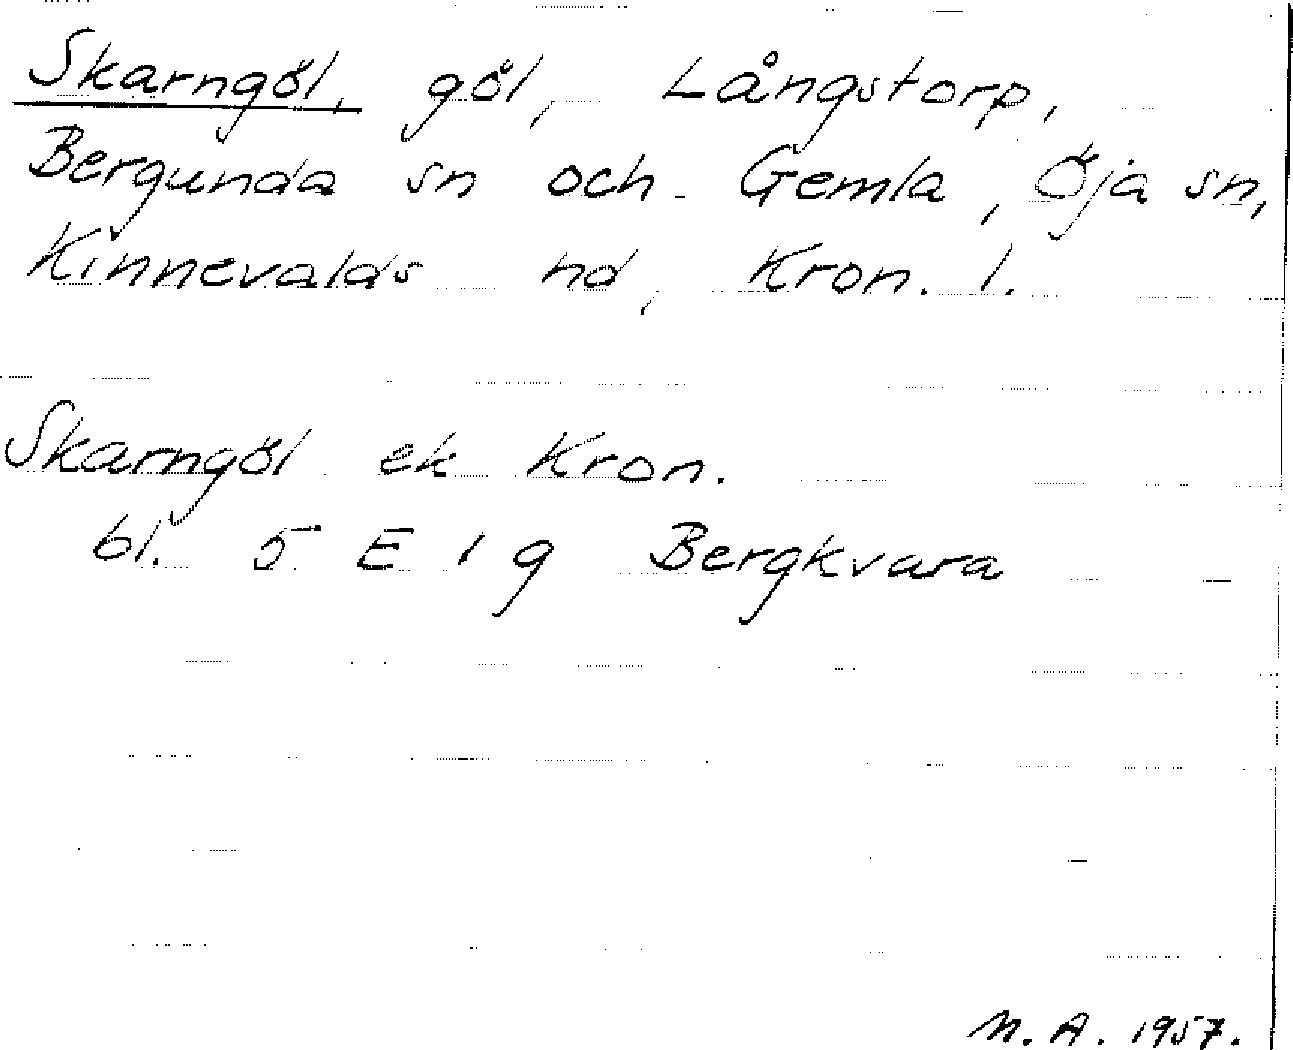 Skarngöl, göl, Långstorp,
Bergunda sn och Gemla, Öja sn,
Kinnevalds hd, Kron. l.
Skarngöl ek Kron.
bl. 5 E 1 g Bergkvara
N. A. 1957.